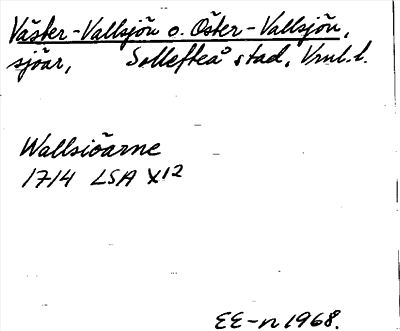 Väster-Vallsjön o. Öster-Vallsjön,
sjöar, Sollefteå stad, Vnrl.l.
Wallsiöarne
1714 LSA X12
EE-n 1968.